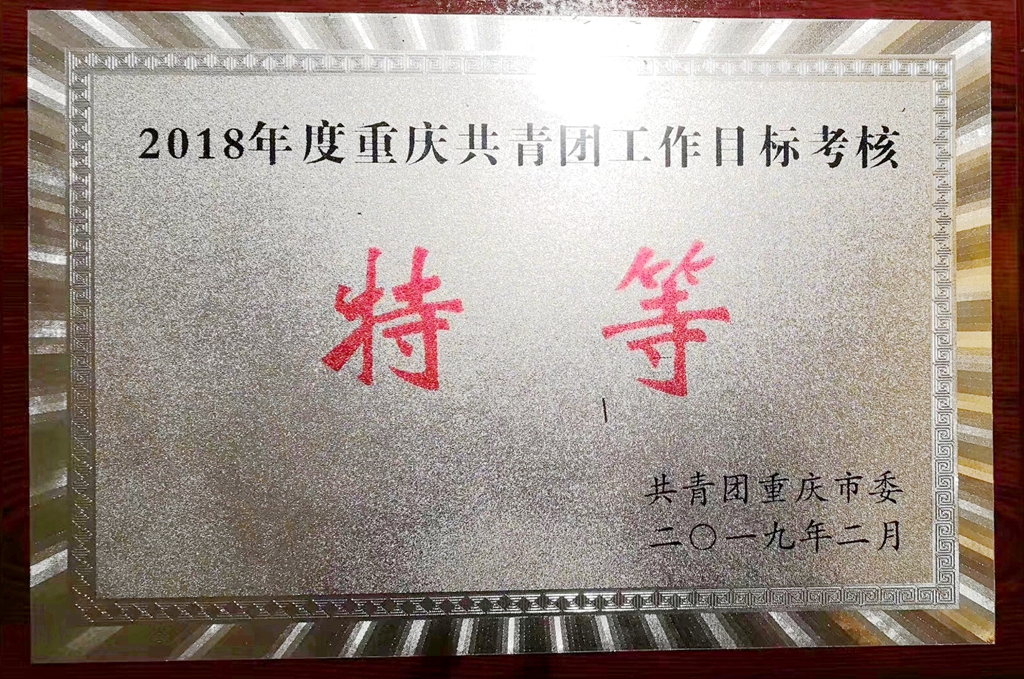 2018年度重庆共青团工作目标考核
特等
共青团重庆市委
二〇一九年二月